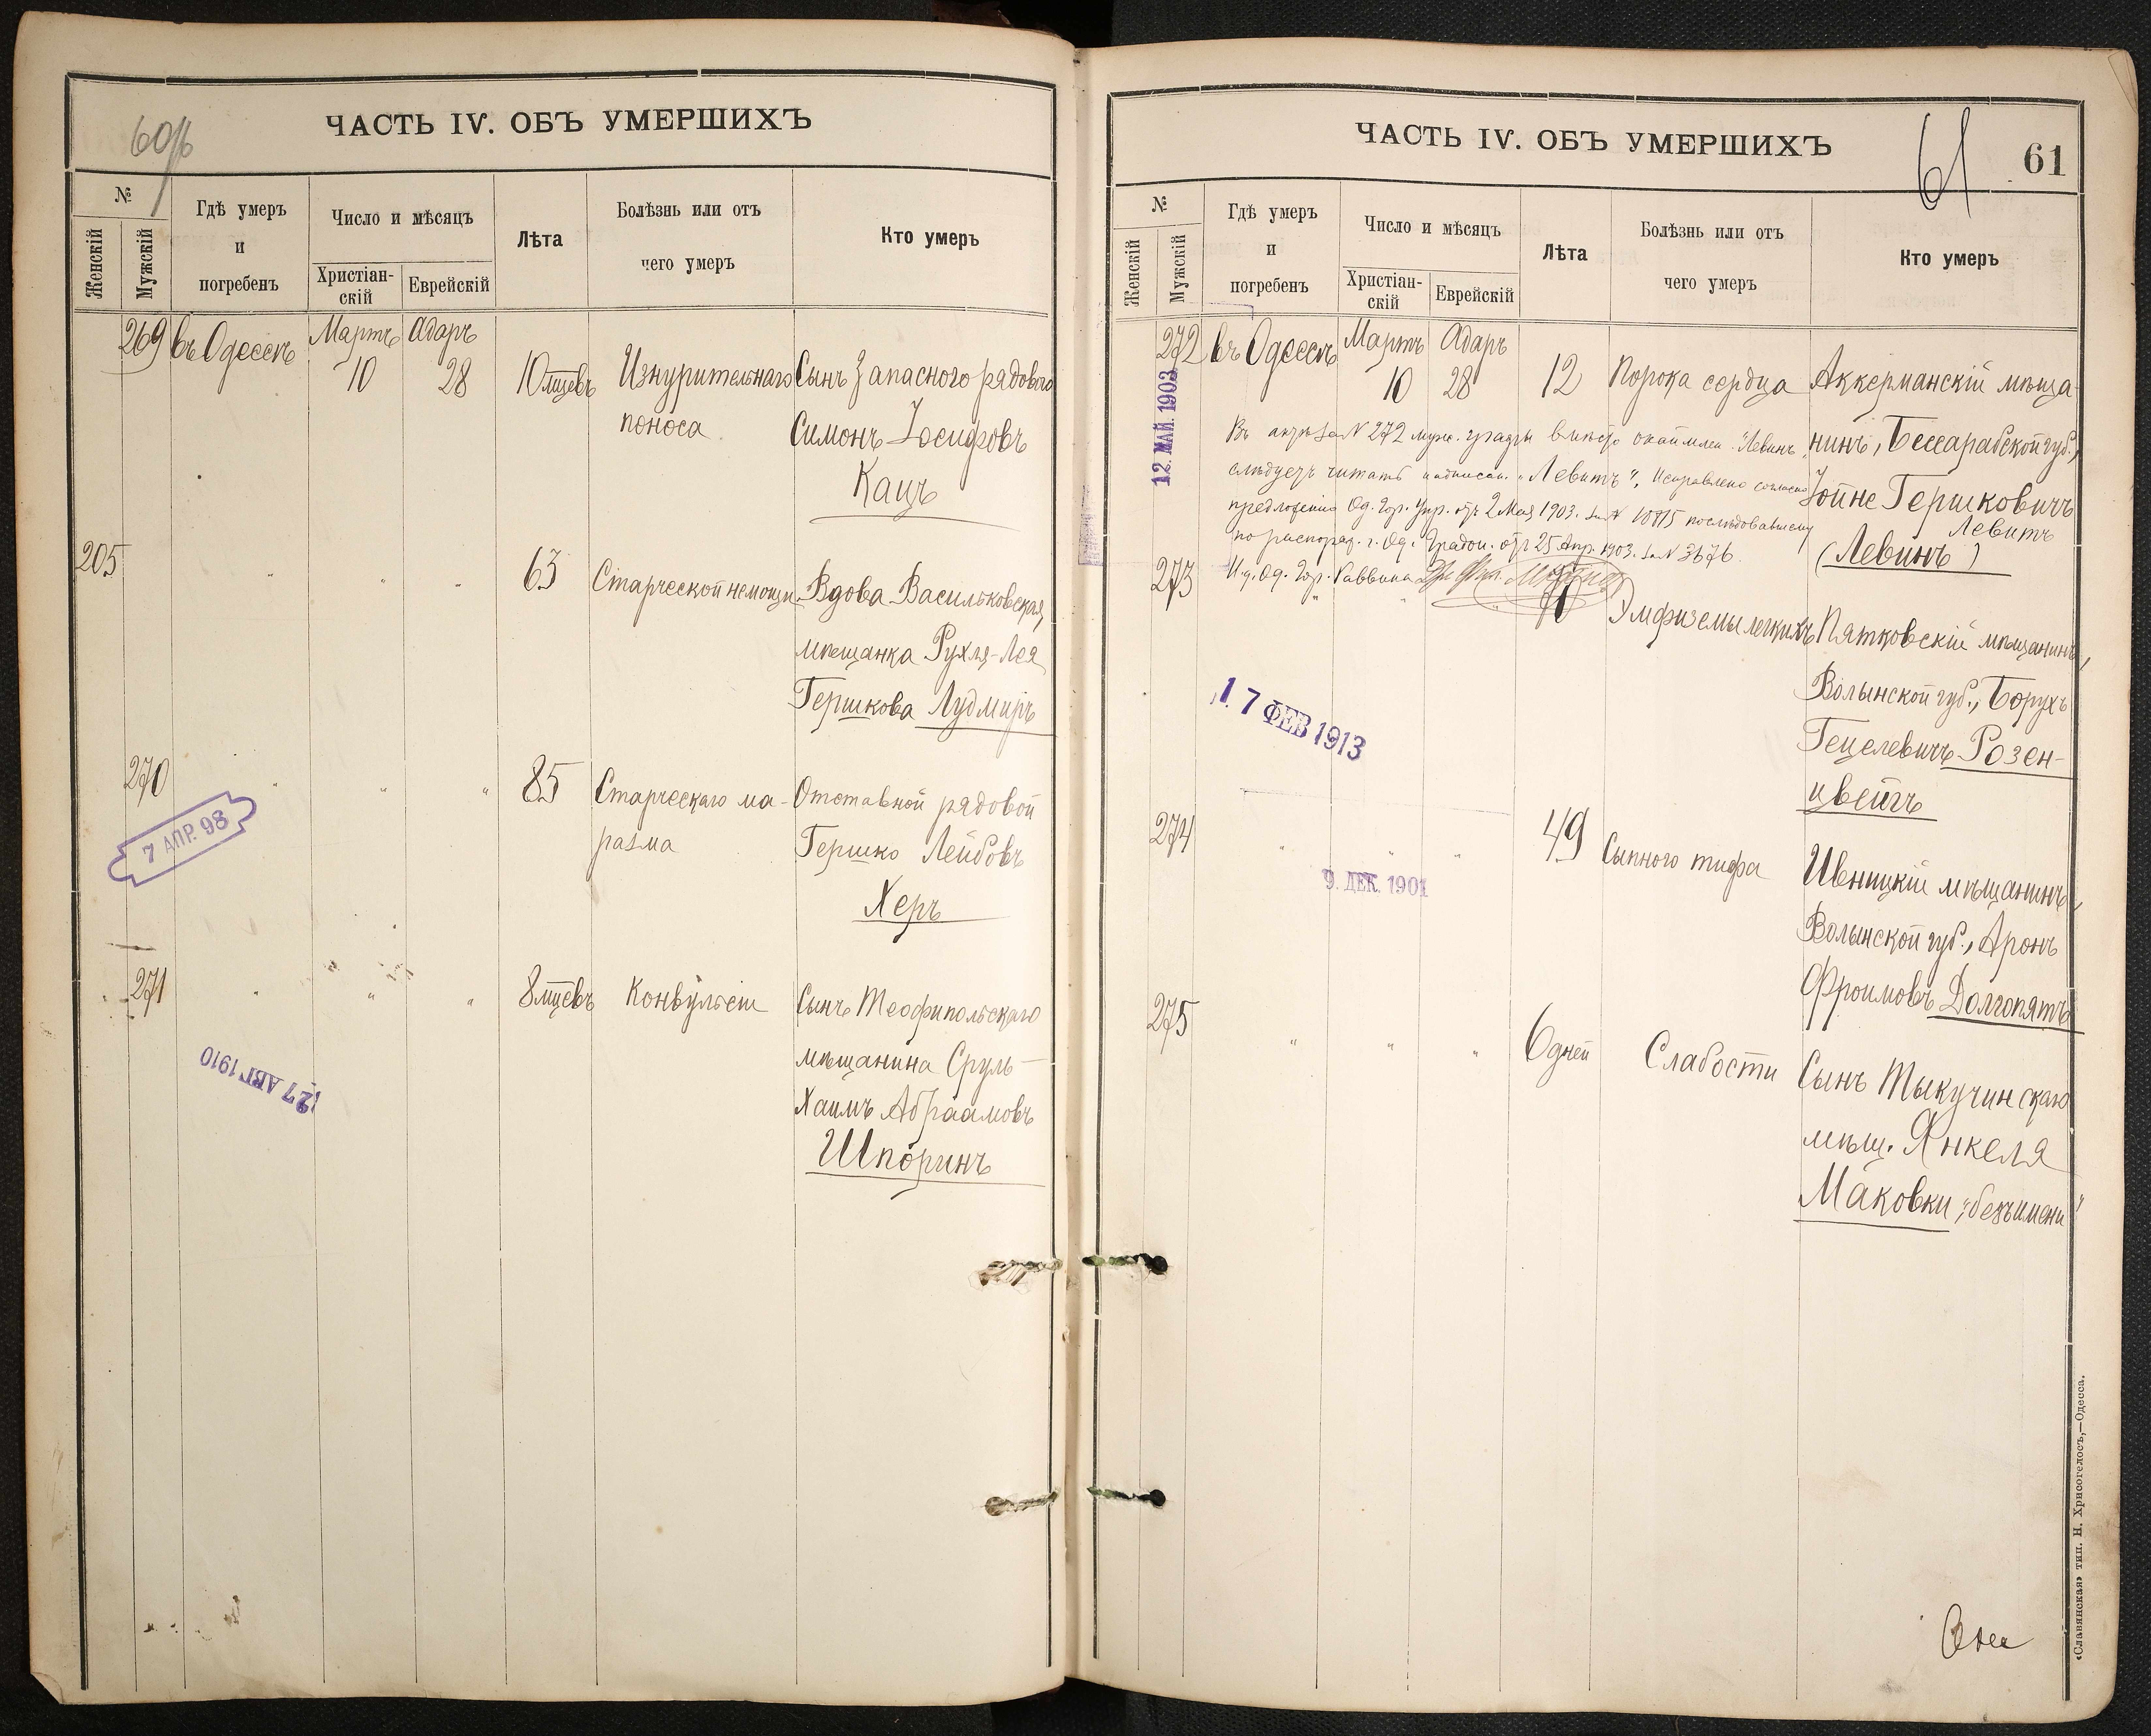 60об
ЧАСТЬ IV. ОБЪ УМЕРШИХЪ
№
Женскій
Мужскій
Гдѣ умеръ
и
погребенъ
Число и мѣсяцъ
Христіан-
скій
Еврейскій
Лѣта
Болѣзнь или отъ
чего умеръ
Кто умеръ
269 въ Одессѣ Мартъ Адаръ
10 28 10 мцевъ Изнурительнаго Сынъ Запаснаго рядового
поноса Симонъ Іосифовъ
Кацъ
205 " " " 63 Старческой немощи Вдова Васильковская,
мѣщанка Рухля-Лея
Гершкова Лудмиръ
270 " " " 85 Старческаго ма- Отставной рядовой
разма Гершко Лейбовъ
Херъ
7 АПР. 98
271 " " " 8 мцевъ Конвульсіи Сынъ Теофипольскаго
мѣщанина Сруль-
Хаимъ Абраамовъ
Шпоринъ
27 АВГ 1910
ЧАСТЬ IV. ОБЪ УМЕРШИХЪ
61
61
№
Женскій
Мужскій
Гдѣ умеръ
и
погребенъ
Число и мѣсяцъ
Христіан-
скій
Еврейскій
Лѣта
Болѣзнь или отъ
чего умеръ
Кто умеръ
272 въ Одессѣ Мартъ Адаръ
10 28 12 Порока сердца Аккерманскій мѣща-
нинъ, Бессарабской губ.,
Іойне Гершковичъ
Левитъ
(Левинъ)
12. МАЙ. 1903
Въ актѣ за N 272 муж. графы вмѣсто "Левинъ"
слѣдуетъ читать "Левитъ". Исправлено согласно
предложенію Од. Гор. Упр. отъ 2 Мая 1903. за N 10815 послѣдовавшему
по распоряж. г. Од. Градон. отъ 25 Апр. 1903. за N 3676.
И. д. Од. Гор. Раввина
273 " " " 70 Эмфиземы легкихъ Пятковскій мѣщанинъ,
Волынской губ., Борухъ
Гецелевичъ Розен-
цвейгъ
17 ФЕВ 1913
274 " " " 49 Сыпного тифа Ивницкій мѣщанинъ,
Волынской губ., Аронъ
Фроимовъ Долгопятъ
9. ДЕК. 1901
275 " " " 6 дней Слабости Сынъ Тыкучинскаго
мѣщ. Янкеля
Маковки, "безъ имени"
«Славянская» тип. Н. Хрисогелосъ,—Одесса.